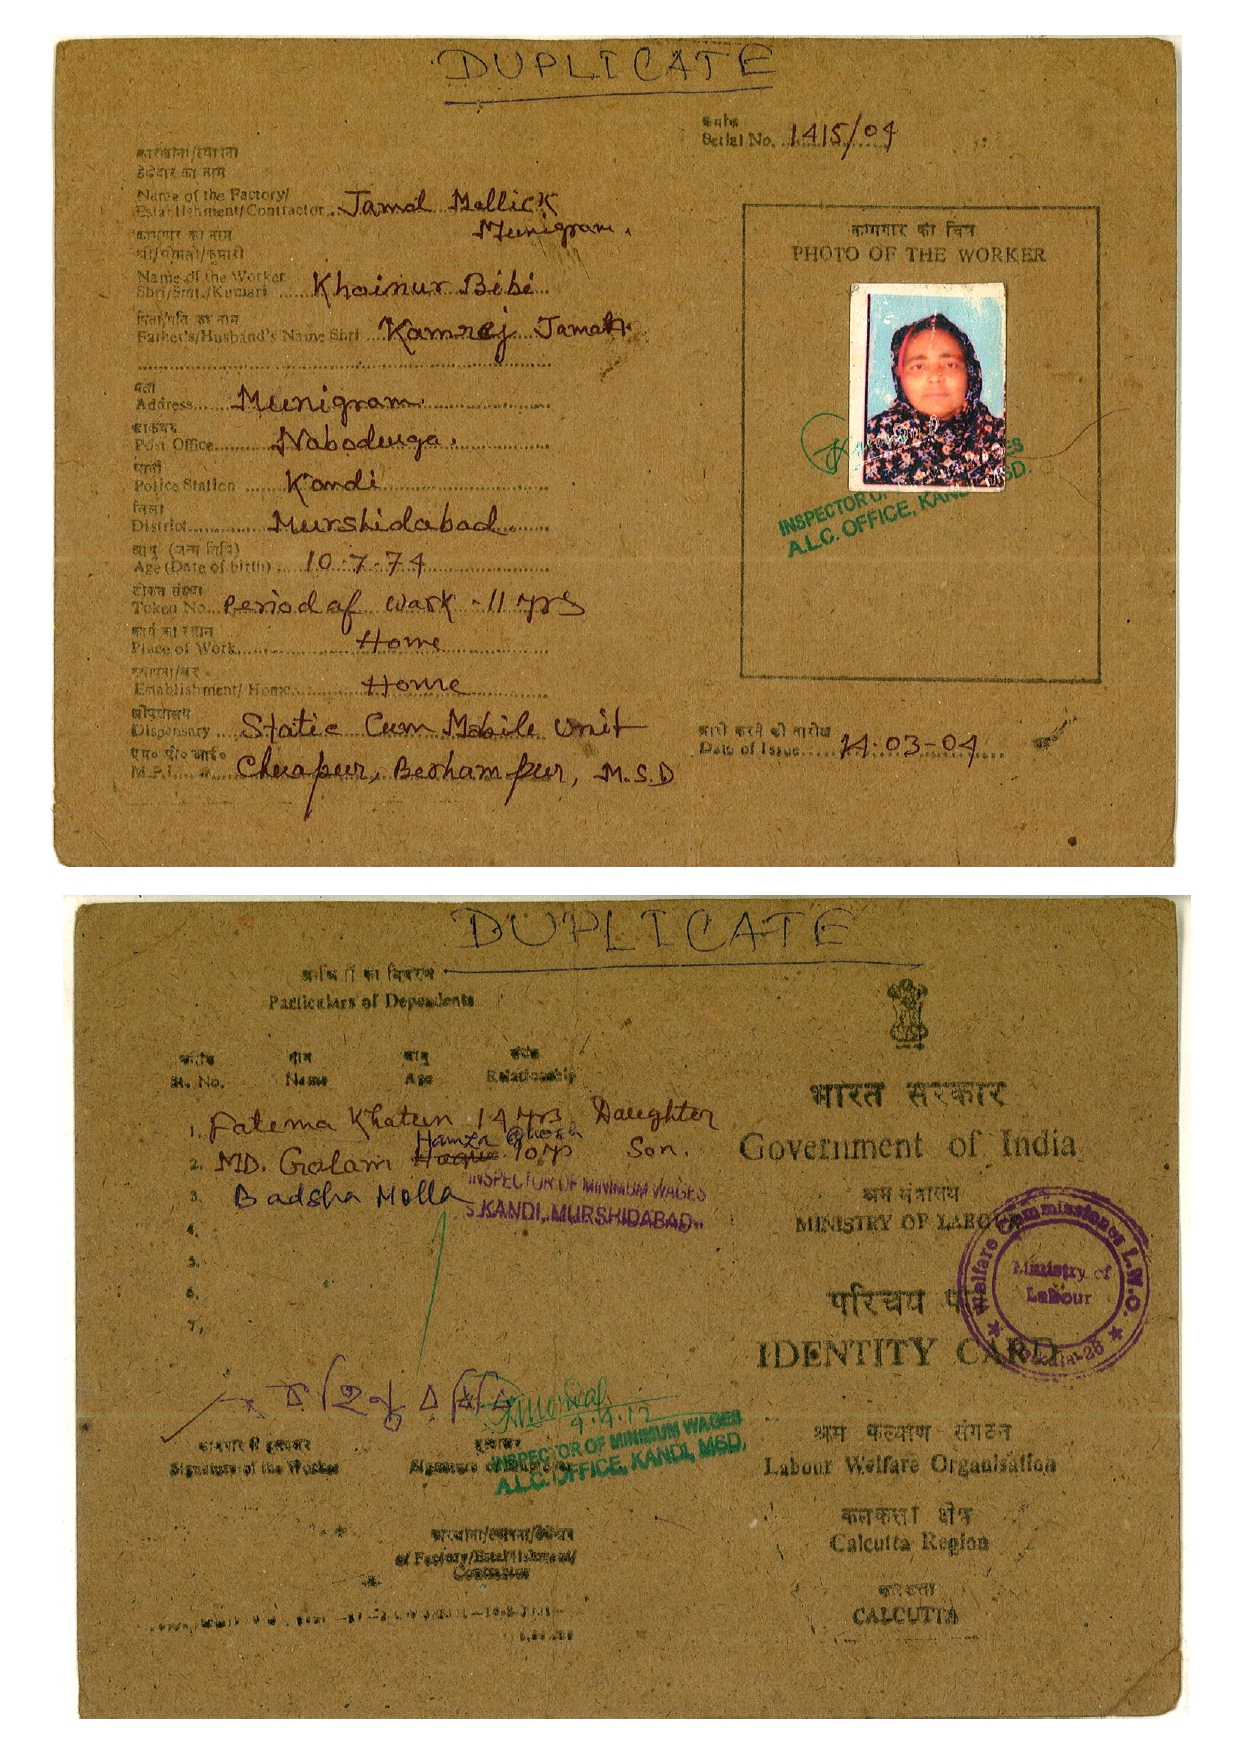 DUPLICATE
क्रमांक
Serial No. 1415/04
कारखाना/स्थापना
ठेकेदार का नाम
Name of the Factory/
Establishment/Contractor Jamal Mallick
Munigram.
कामगार का नाम
श्री/श्रीमती/कुमारी
Name of the Worker
Shri/Smt./Kumari Khainur Bibi
पिता/पति का नाम
Father's/Husband's Name Shri Kamrej Jamat
पता
Address Munigram.
डाकघर
Post Office Nabodurga.
थाना
Police Station Kandi
जिला
District Murshidabad.
आयु (जन्म तिथि)
Age (Date of birth) 10-7-74
टोकन संख्या
Token No. Period of Work - 11 yrs
कार्य का स्थान
Place of Work Home
स्थापना/घर
Establishment/ Home Home
औषधालय
Dispensary Static Cum Mobile Unit
एम० पी० आई०
M.P.I. Chuapur, Berhampur, M.S.D
कामगार का चित्र
PHOTO OF THE WORKER
INSPECTOR
A.L.C. OFFICE, KANDI, MSD.
जारी करने की तारीख
Date of Issue 14-03-04
DUPLICATE
आश्रितों का विवरण
Particulars of Dependents
क्रमांक नाम आयु संबंध
Sl. No. Name Age Relationship
1. Fatema Khatun 14 yrs Daughter
2. MD. Golam Hamza 10 yrs Son.
3. Badsha Molla
INSPECTOR OF MINIMUM WAGES
KANDI, MURSHIDABAD.
4.
5.
6.
7.
9.4.12
INSPECTOR OF MINIMUM WAGES
A.L.C. OFFICE, KANDI, MSD.
कामगार के हस्ताक्षर
Signature of the Worker
हस्ताक्षर
Signature of
कारखाना/स्थापना/ठेकेदार
of Factory/Establishment/
Contractor
भारत सरकार
Government of India
श्रम मंत्रालय
MINISTRY OF LABOUR
Welfare Commissioner L.W.O.
Ministry of
Labour
परिचय पत्र
IDENTITY CARD
श्रम कल्याण संगठन
Labour Welfare Organisation
कलकत्ता क्षेत्र
Calcutta Region
कलकत्ता
CALCUTTA